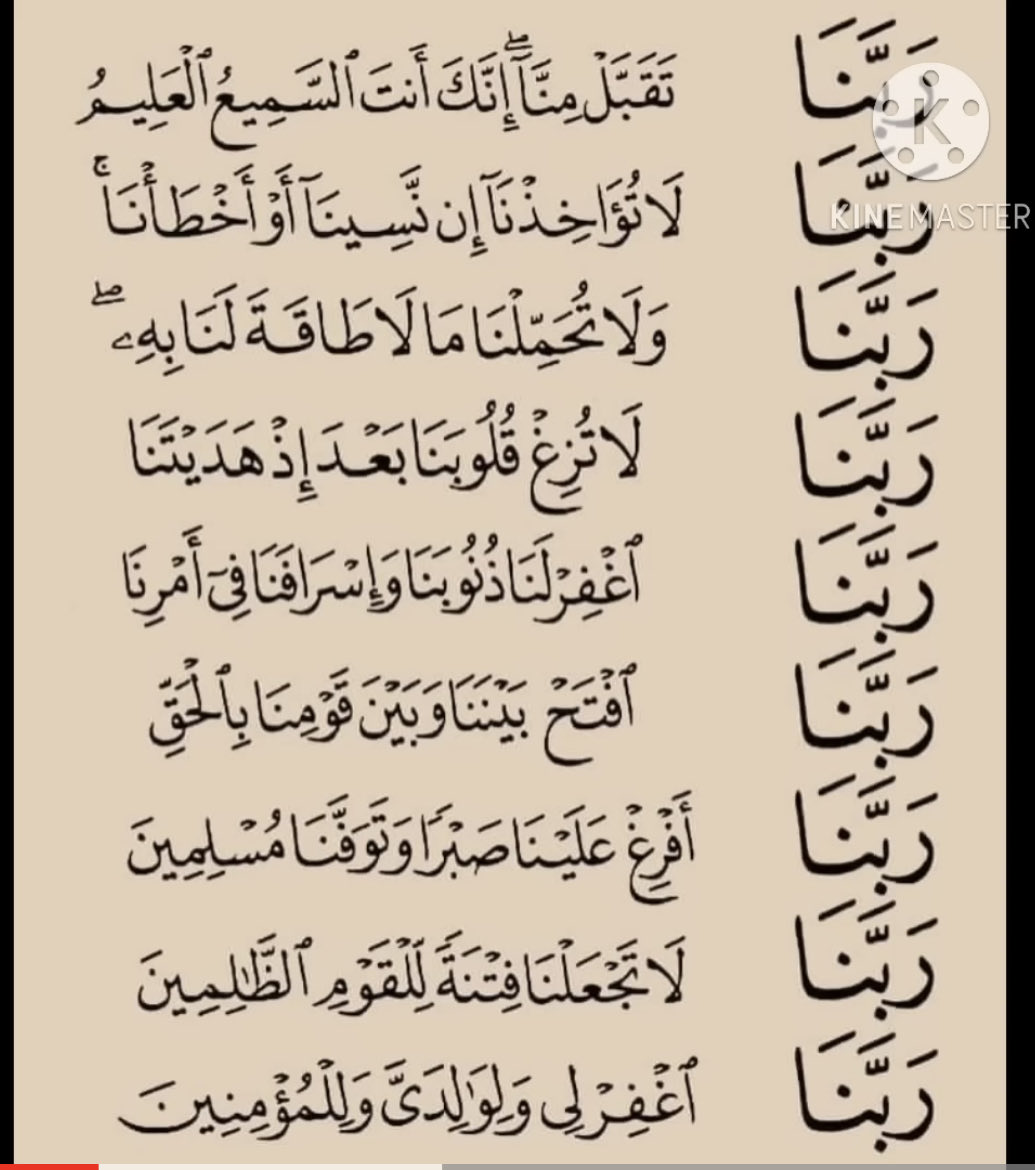 رَبَّنَا تَقَبَّلْ مِنَّآ ۖ إِنَّكَ أَنتَ ٱلسَّمِيعُ ٱلْعَلِيمُ
رَبَّنَا لَا تُؤَاخِذْنَآ إِن نَّسِينَآ أَوْ أَخْطَأْنَا ۚ
رَبَّنَا وَلَا تُحَمِّلْنَا مَا لَا طَاقَةَ لَنَا بِهِۦ ۖ
رَبَّنَا لَا تُزِغْ قُلُوبَنَا بَعْدَ إِذْ هَدَيْتَنَا
رَبَّنَا ٱغْفِرْ لَنَا ذُنُوبَنَا وَإِسْرَافَنَا فِىٓ أَمْرِنَا
رَبَّنَا ٱفْتَحْ بَيْنَنَا وَبَيْنَ قَوْمِنَا بِٱلْحَقِّ
رَبَّنَا أَفْرِغْ عَلَيْنَا صَبْرًا وَتَوَفَّنَا مُسْلِمِينَ
رَبَّنَا لَا تَجْعَلْنَا فِتْنَةً لِّلْقَوْمِ ٱلظَّٰلِمِينَ
رَبَّنَا ٱغْفِرْ لِى وَلِوَٰلِدَىَّ وَلِلْمُؤْمِنِينَ
K
KINEMASTER